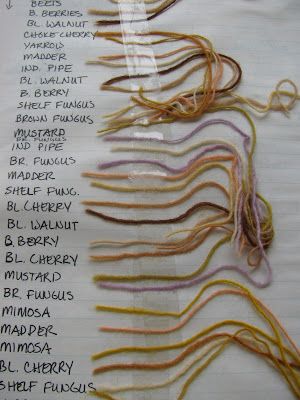 BEETS
B. BERRIES
BL. WALNUT
CHOKE CHERRY
YARROW
MADDER
IND. PIPE
BL. WALNUT
B. BERRY
SHELF FUNGUS
BROWN FUNGUS
MUSTARD
BR. FUNGUS
IND PIPE
BR. FUNGUS
MADDER
SHELF FUNG.
BL. CHERRY
BL. WALNUT
B. BERRY
BL. CHERRY
MUSTARD
BR. FUNGUS
MIMOSA
MADDER
MIMOSA
BL. CHERRY
SHELF FUNGUS